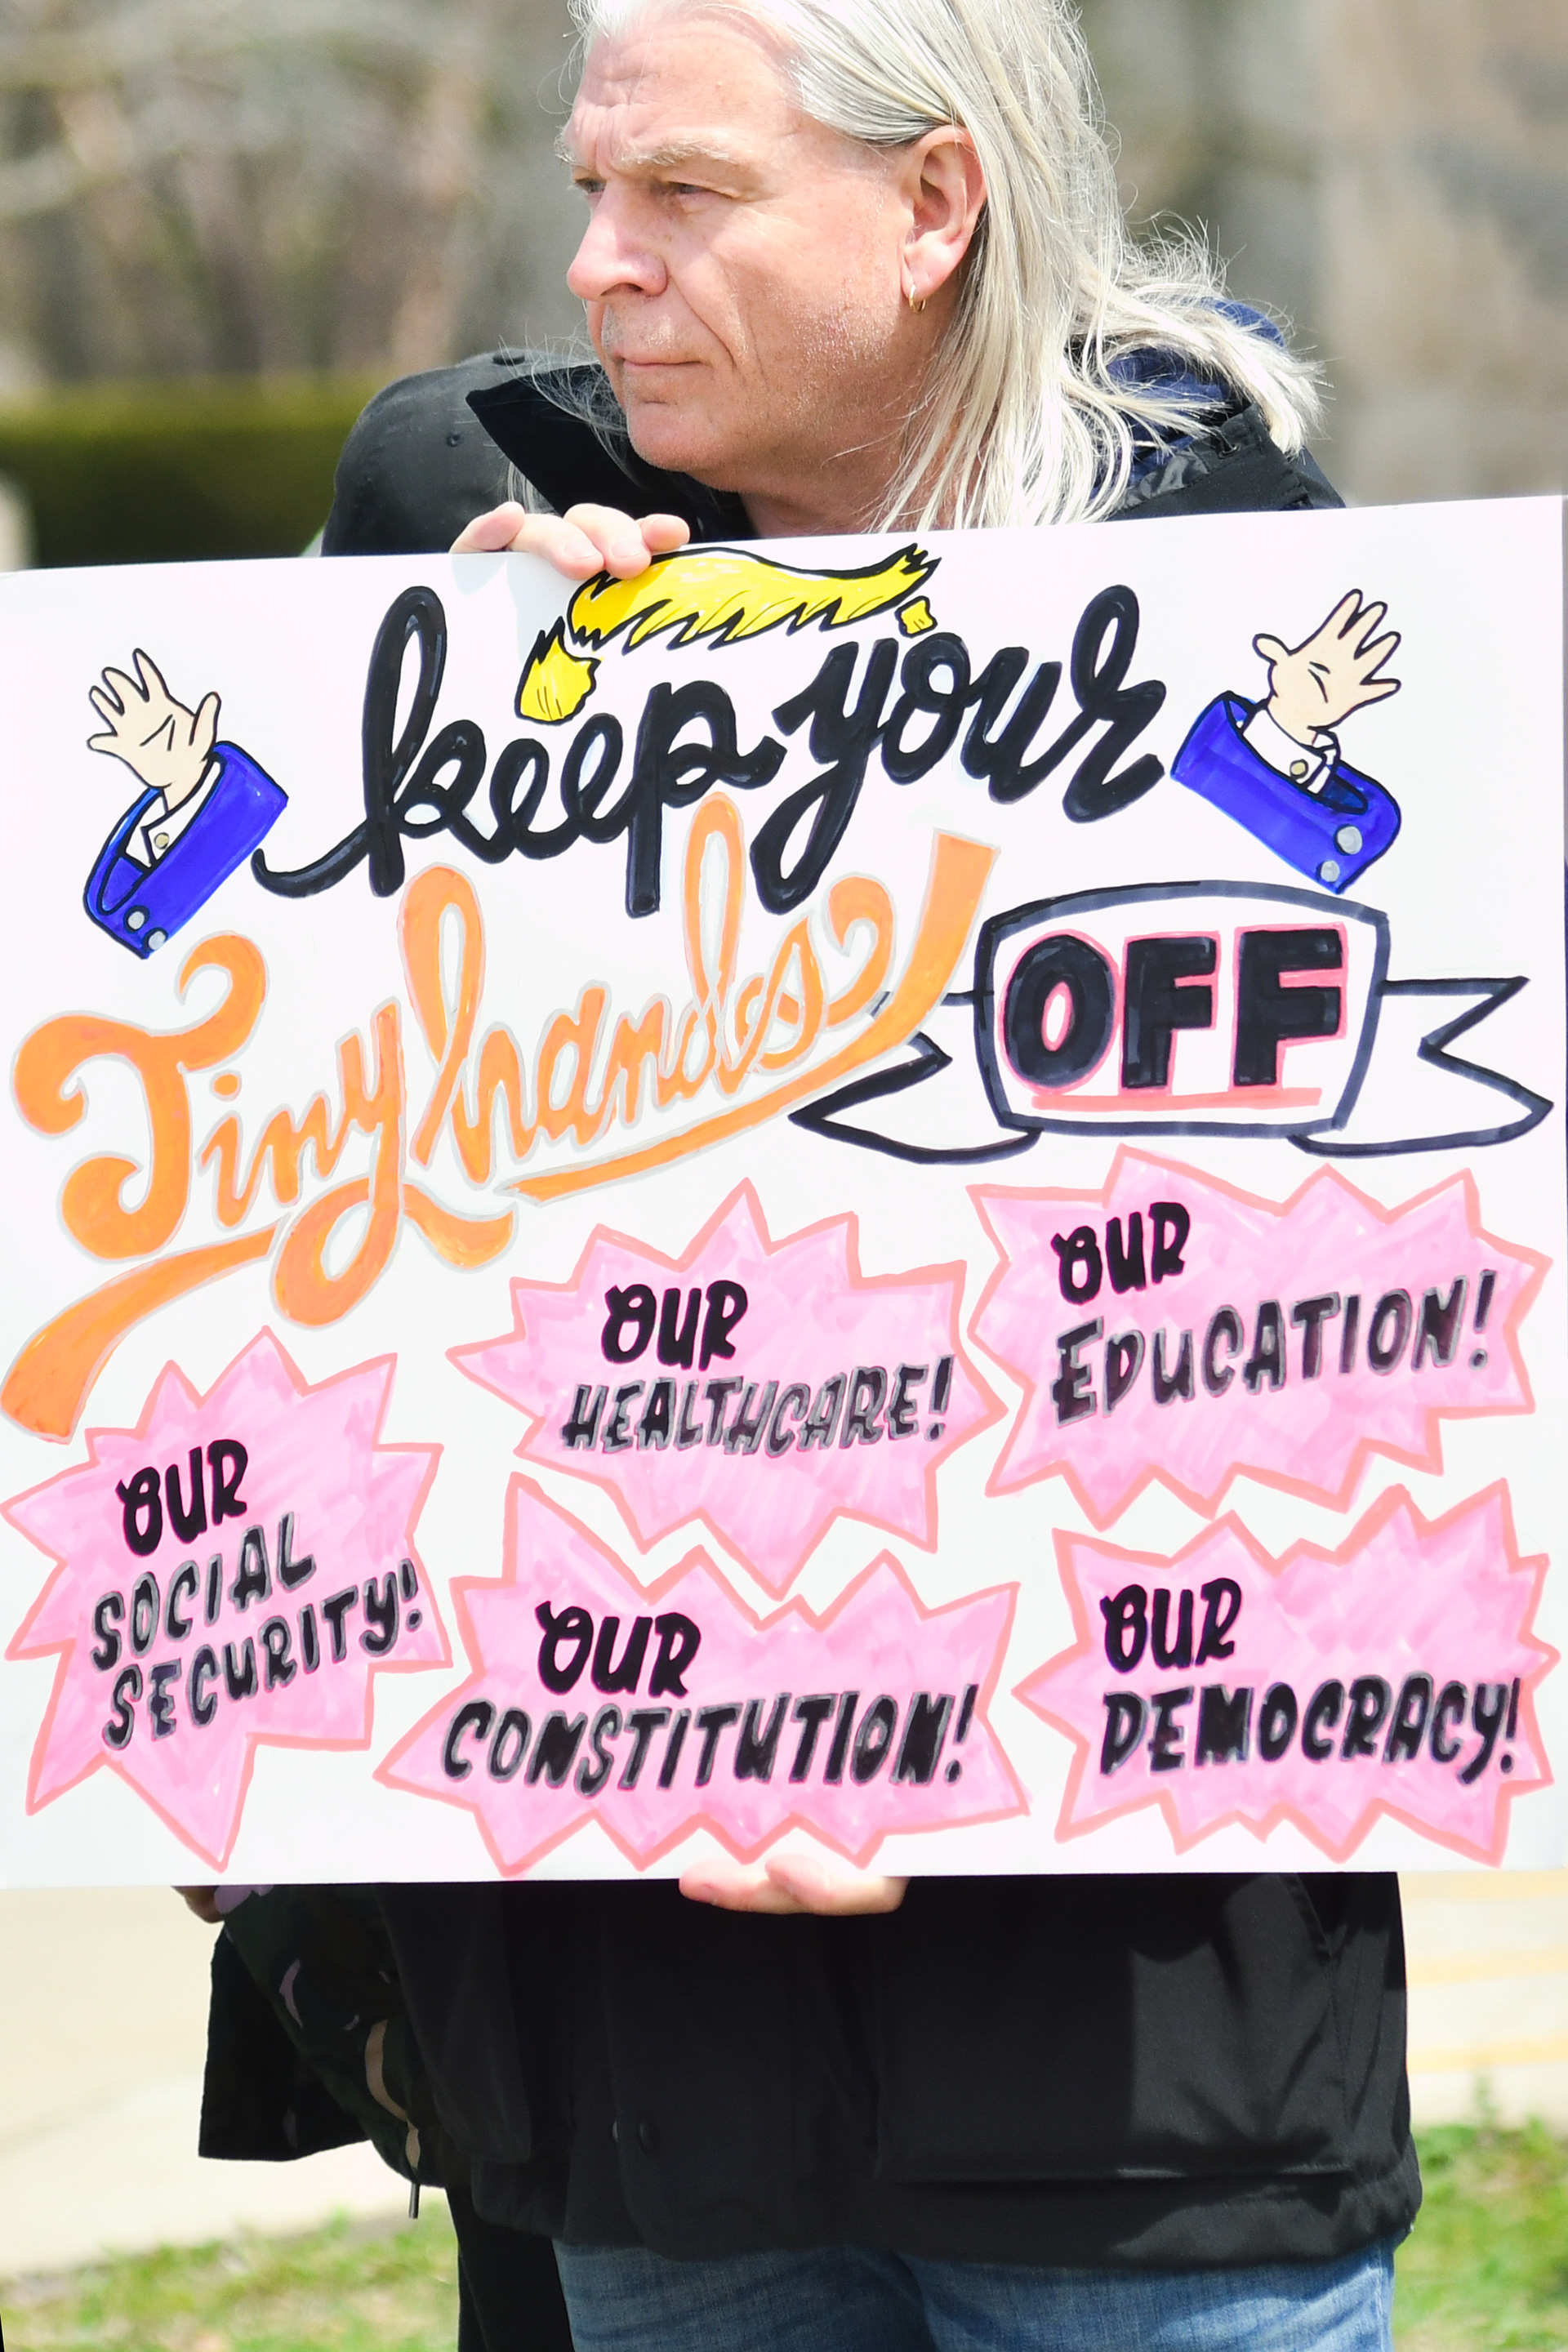 keep your
Tiny hands OFF
OUR
HEALTHCARE!
OUR
EDUCATION!
OUR
SOCIAL
SECURITY!
OUR
CONSTITUTION!
OUR
DEMOCRACY!